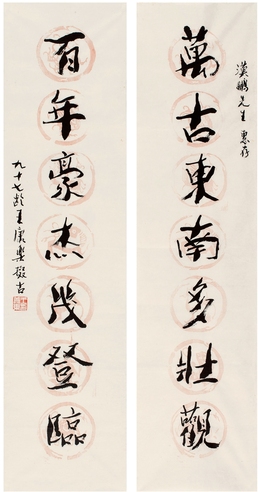 漢鵬先生惠存
萬古東南多壯觀
百年豪杰幾登臨
九十七齡王康樂敬書